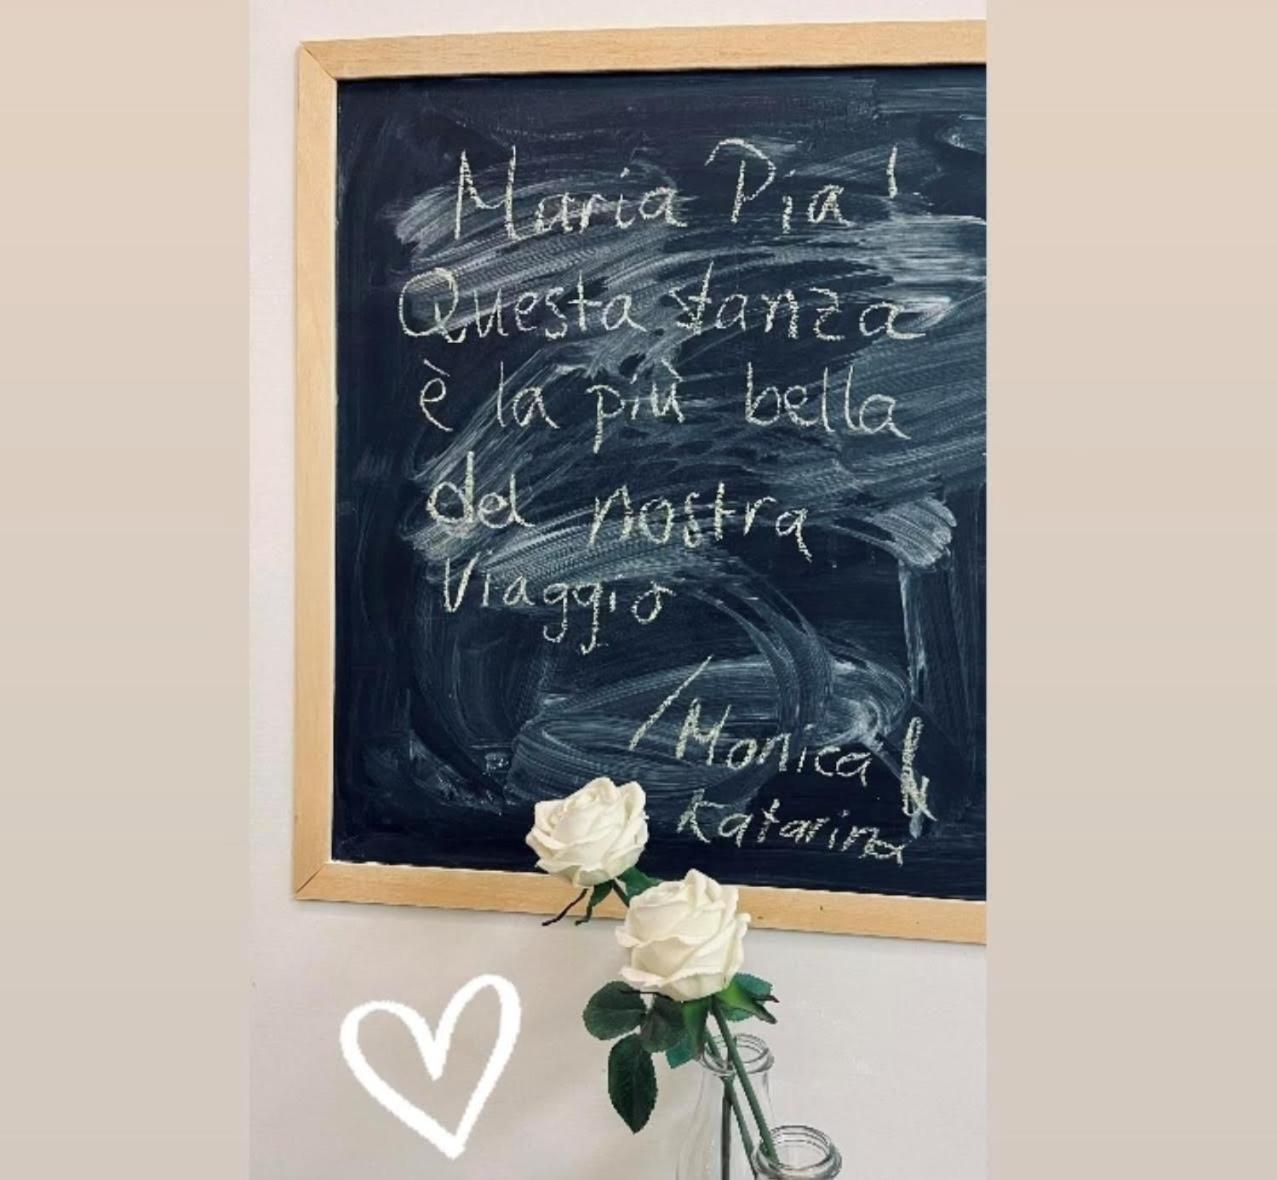 Maria Pia!
Questa stanza
è la più bella
del nostra
Viaggio
/Monica &
Katarina